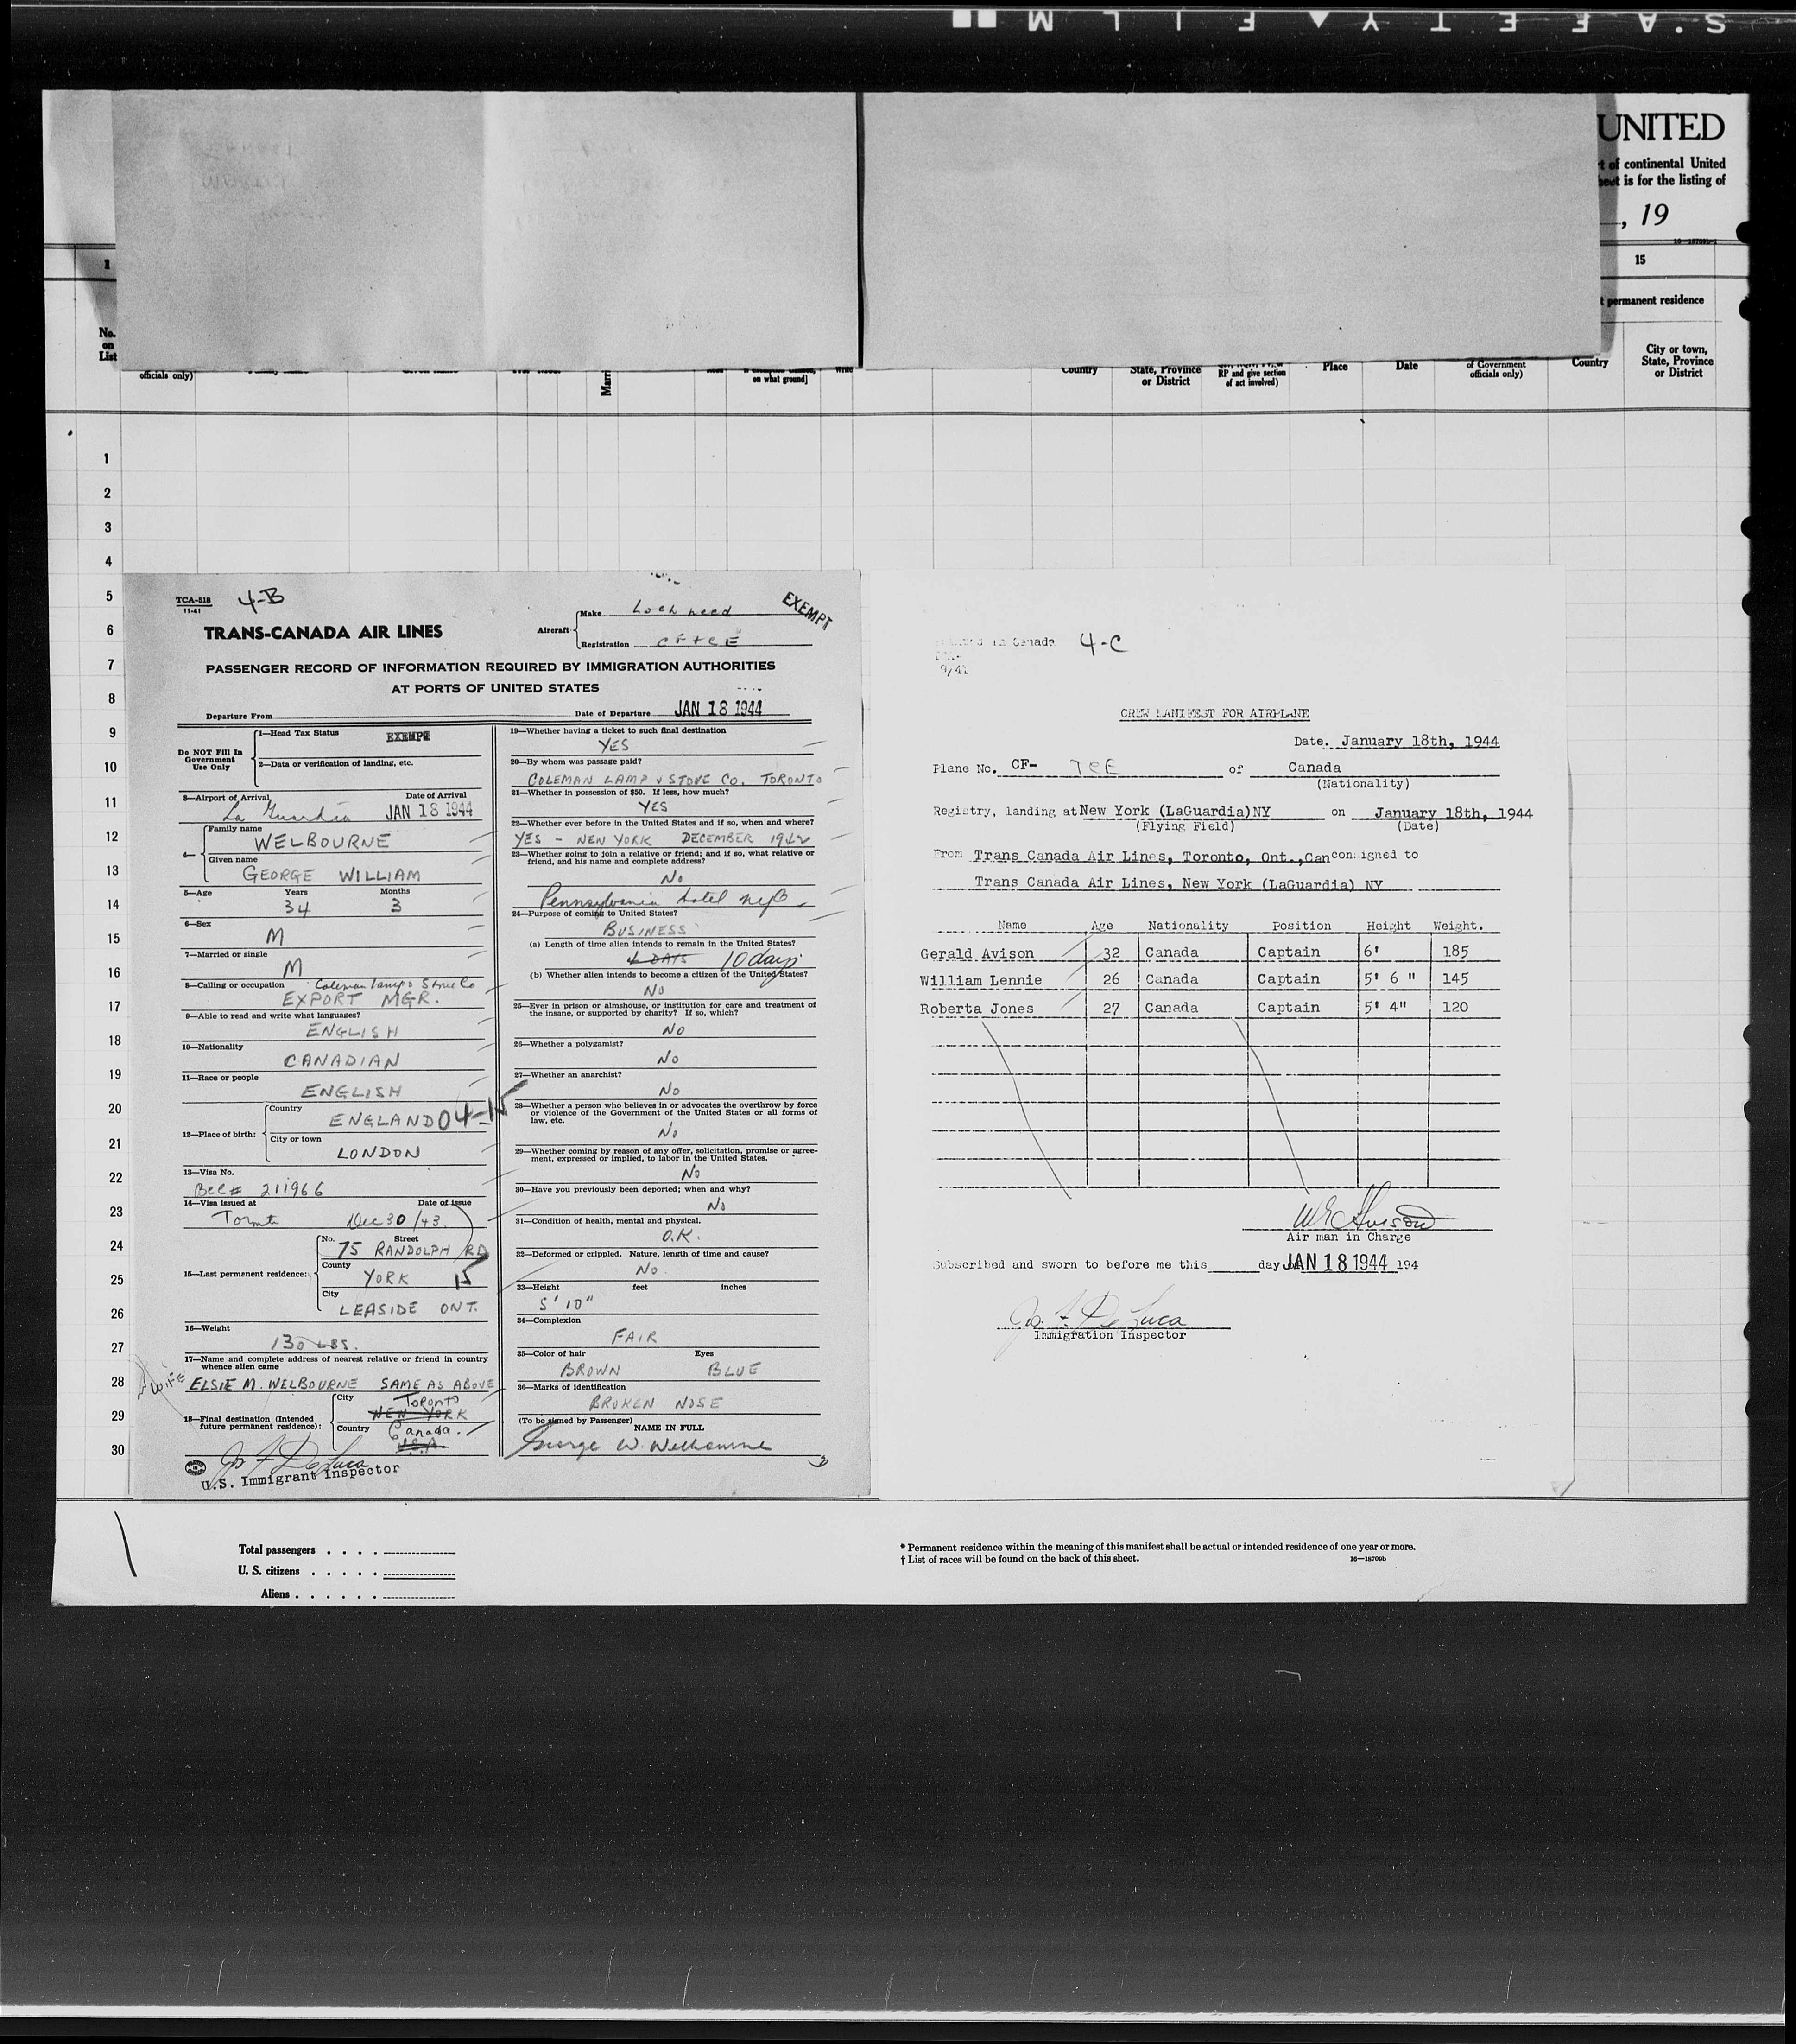 S.A F E T Y ▲ F I L M ■■
UNITED
t of continental United
heet is for the listing of
, 19
16—18709b-1
1
15
t permanent residence
No.
on
List
officials only)
Marri
on what ground]
Write
Country
State, Province
or District
RP and give section
of act involved)
Place
Date
of Government
officials only)
Country
City or town,
State, Province
or District
1
2
3
4
5
6
7
8
9
10
11
12
13
14
15
16
17
18
19
20
21
22
23
24
25
26
27
28
29
30
TCA-518
11-41
4-B
EXEMPT
TRANS-CANADA AIR LINES
Aircraft
Make Lockheed
Registration CF+CE
PASSENGER RECORD OF INFORMATION REQUIRED BY IMMIGRATION AUTHORITIES
AT PORTS OF UNITED STATES
Departure From
Date of Departure JAN 18 1944
Do NOT Fill In
Government
Use Only
1—Head Tax Status EXEMPT
2—Data or verification of landing, etc.
3—Airport of Arrival Date of Arrival
La Guardia JAN 18 1944
4— Family name
WELBOURNE
Given name
GEORGE WILLIAM
5—Age Years Months
34 3
6—Sex
M
7—Married or single
M
8—Calling or occupation Coleman Lamp & Stove Co
EXPORT MGR.
9—Able to read and write what languages?
ENGLISH
10—Nationality
CANADIAN
11—Race or people
ENGLISH
12—Place of birth:
Country
ENGLAND 04-15
City or town
LONDON
13—Visa No.
BCC# 211966
14—Visa issued at Date of issue
Toronto Dec 30/43.
15—Last permanent residence:
No. Street
75 RANDOLPH RD
County
YORK 15
City
LEASIDE ONT.
16—Weight
130 LBS.
17—Name and complete address of nearest relative or friend in country
whence alien came
WIFE
ELSIE M. WELBOURNE SAME AS ABOVE
18—Final destination (Intended
future permanent residence):
City Toronto
NEW YORK
Country Canada.
U.S.A.
Jos F De Luca
U.S. Immigrant Inspector
19—Whether having a ticket to such final destination
YES
20—By whom was passage paid?
COLEMAN LAMP & STOVE CO. TORONTO
21—Whether in possession of $50. If less, how much?
YES
22—Whether ever before in the United States and if so, when and where?
YES - NEW YORK DECEMBER 1942
23—Whether going to join a relative or friend; and if so, what relative or
friend, and his name and complete address?
NO
Pennsylvania hotel nyc
24—Purpose of coming to United States?
BUSINESS
(a) Length of time alien intends to remain in the United States?
4 DAYS 10 days
(b) Whether alien intends to become a citizen of the United States?
NO
25—Ever in prison or almshouse, or institution for care and treatment of
the insane, or supported by charity? If so, which?
NO
26—Whether a polygamist?
NO
27—Whether an anarchist?
NO
28—Whether a person who believes in or advocates the overthrow by force
or violence of the Government of the United States or all forms of
law, etc.
NO
29—Whether coming by reason of any offer, solicitation, promise or agree-
ment, expressed or implied, to labor in the United States.
NO
30—Have you previously been deported; when and why?
NO
31—Condition of health, mental and physical.
O.K.
32—Deformed or crippled. Nature, length of time and cause?
NO.
33—Height feet inches
5' 10"
34—Complexion
FAIR
35—Color of hair Eyes
BROWN BLUE
36—Marks of identification
BROKEN NOSE
(To be signed by Passenger)
NAME IN FULL
George W. Welbourne
in Canada 4-C
9/41
CREW MANIFEST FOR AIRPLANE
Date. January 18th, 1944
Plane No. CF- TCE of Canada
(Nationality)
Registry, landing at New York (LaGuardia)NY on January 18th, 1944
(Flying Field) (Date)
From Trans Canada Air Lines, Toronto, Ont.,Can consigned to
Trans Canada Air Lines, New York (LaGuardia) NY
Name Age Nationality Position Height Weight.
Gerald Avison 32 Canada Captain 6' 185
William Lennie 26 Canada Captain 5' 6 " 145
Roberta Jones 27 Canada Captain 5' 4" 120
Air man in Charge
Subscribed and sworn to before me this day JAN 18 1944 194
Jos. F. De Luca
Immigration Inspector
Total passengers . . . .
U. S. citizens . . . . .
Aliens . . . . . .
* Permanent residence within the meaning of this manifest shall be actual or intended residence of one year or more.
† List of races will be found on the back of this sheet.
16—18709b